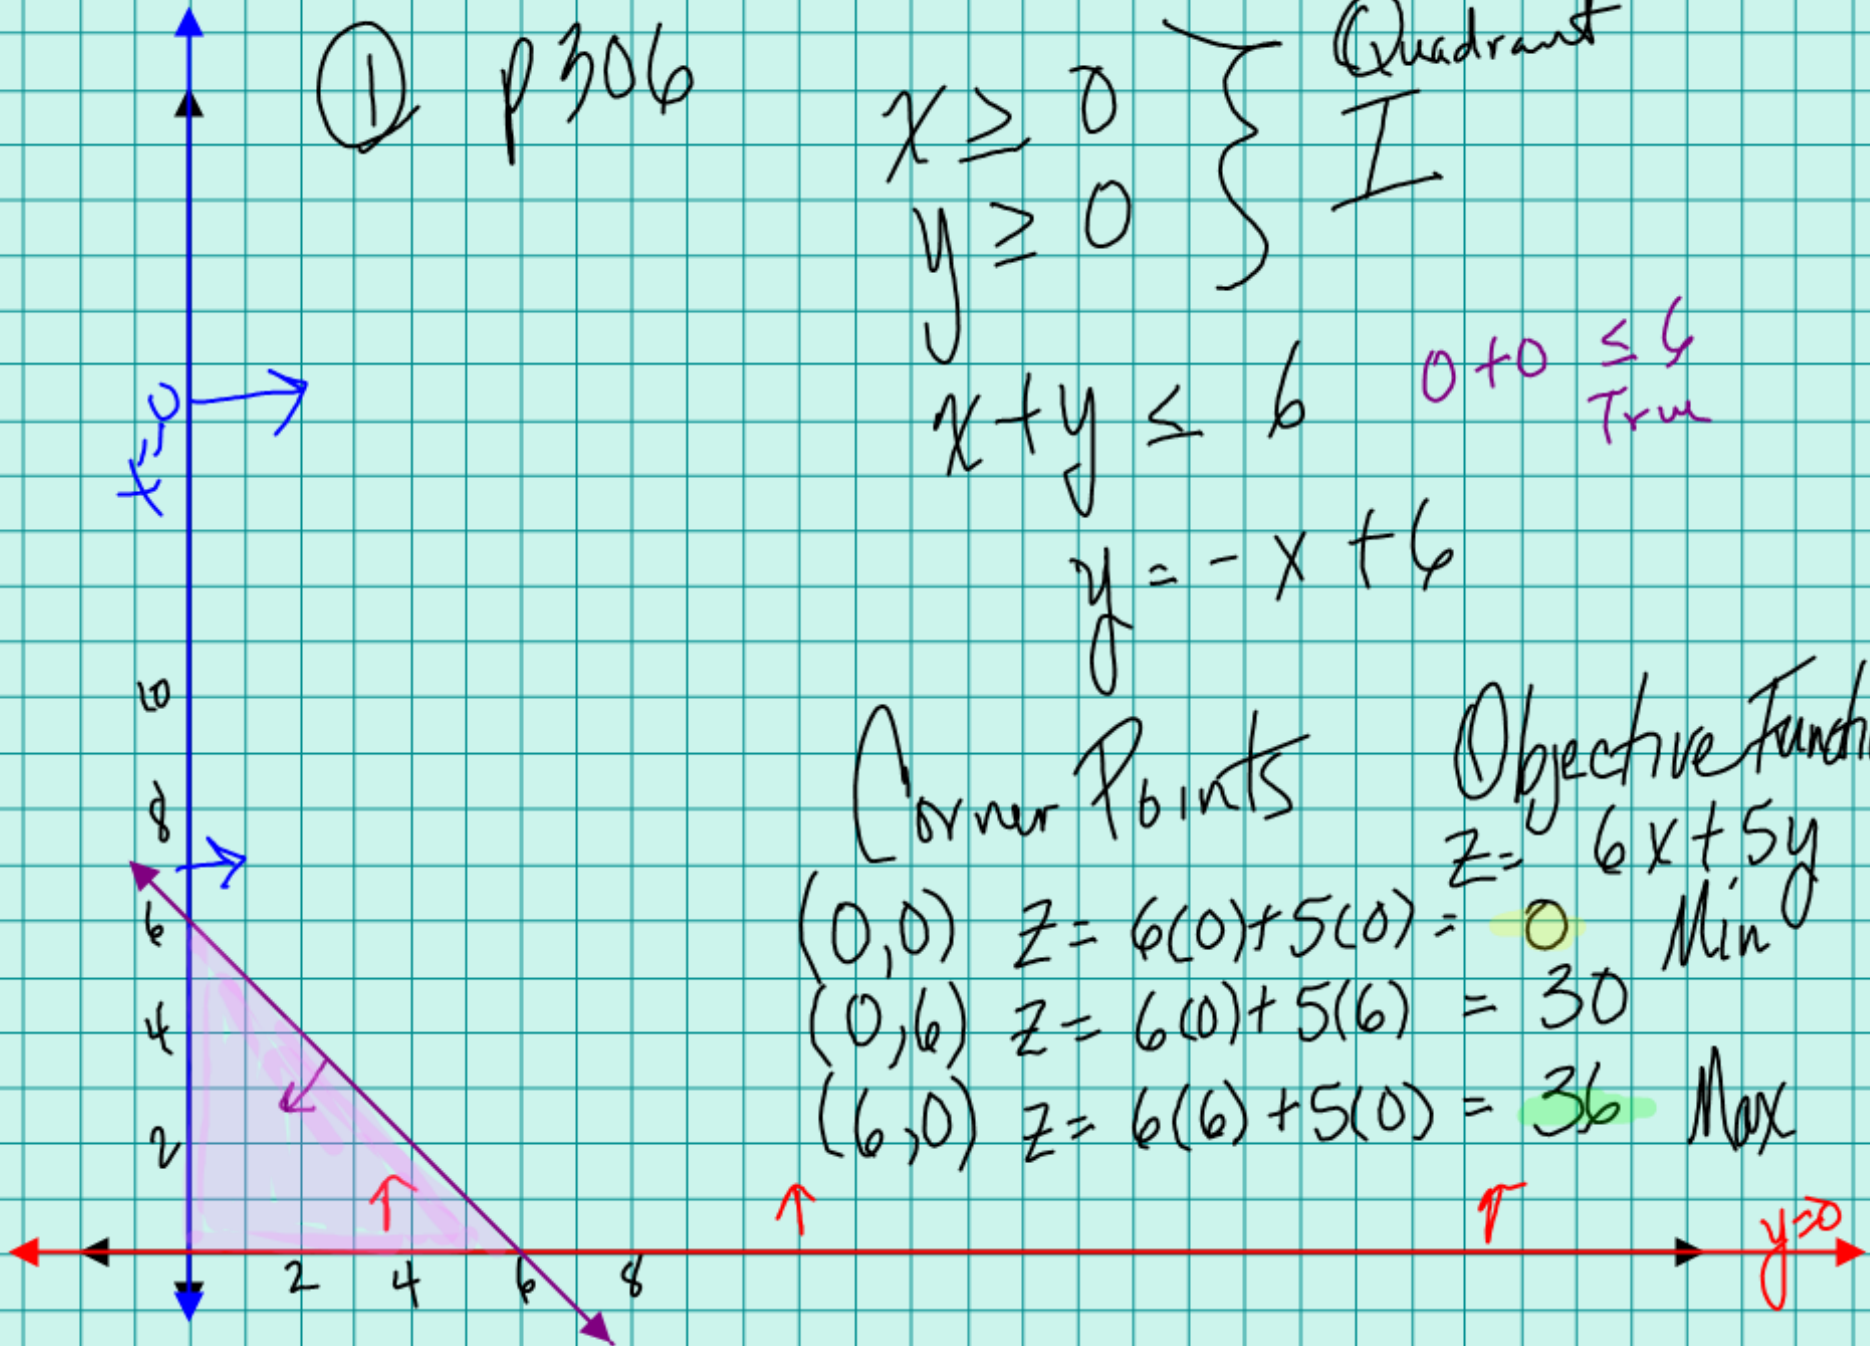 ① p306
x ≥ 0
y ≥ 0
Quadrant
I
x + y ≤ 6
0 + 0 ≤ 6
True
y = - x + 6
x=0
10
8
6
4
2
Corner Points
Objective Functi
z = 6x + 5y
(0,0) z = 6(0) + 5(0) = 0 Min
(0,6) z = 6(0) + 5(6) = 30
(6,0) z = 6(6) + 5(0) = 36 Max
y=0
2 4 6 8